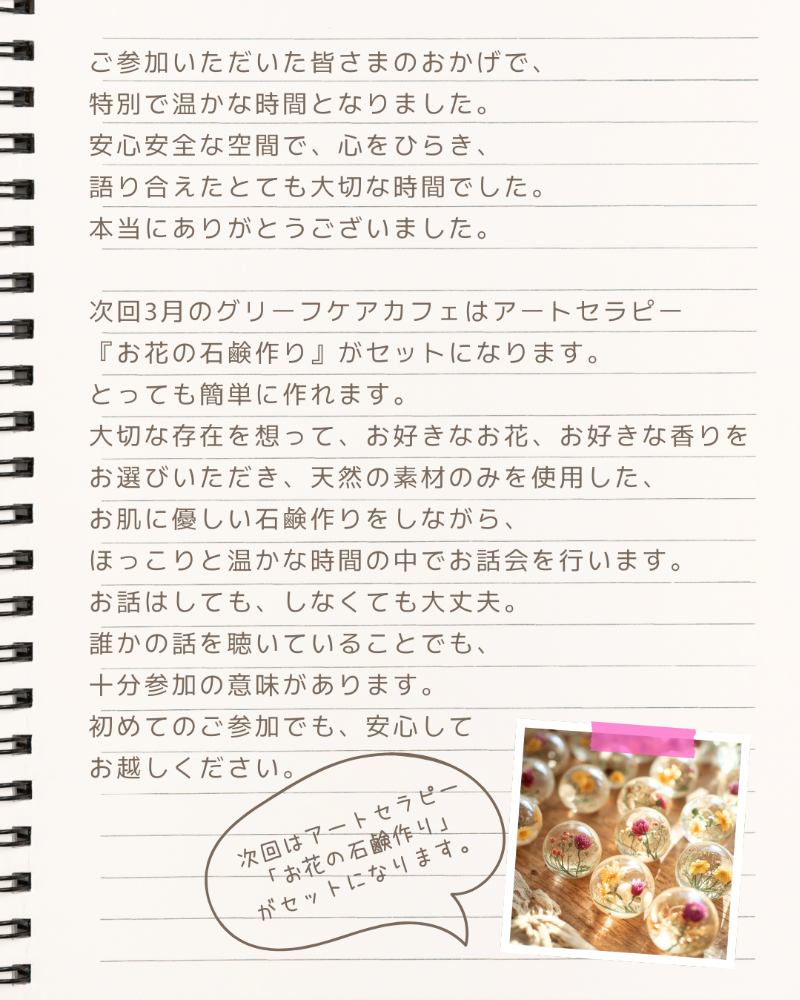 ご参加いただいた皆さまのおかげで、
特別で温かな時間となりました。
安心安全な空間で、心をひらき、
語り合えたとても大切な時間でした。
本当にありがとうございました。
次回3月のグリーフケアカフェはアートセラピー
『お花の石鹸作り』がセットになります。
とっても簡単に作れます。
大切な存在を想って、お好きなお花、お好きな香りを
お選びいただき、天然の素材のみを使用した、
お肌に優しい石鹸作りをしながら、
ほっこりと温かな時間の中でお話会を行います。
お話はしても、しなくても大丈夫。
誰かの話を聴いていることでも、
十分参加の意味があります。
初めてのご参加でも、安心して
お越しください。
次回はアートセラピー
「お花の石鹸作り」
がセットになります。